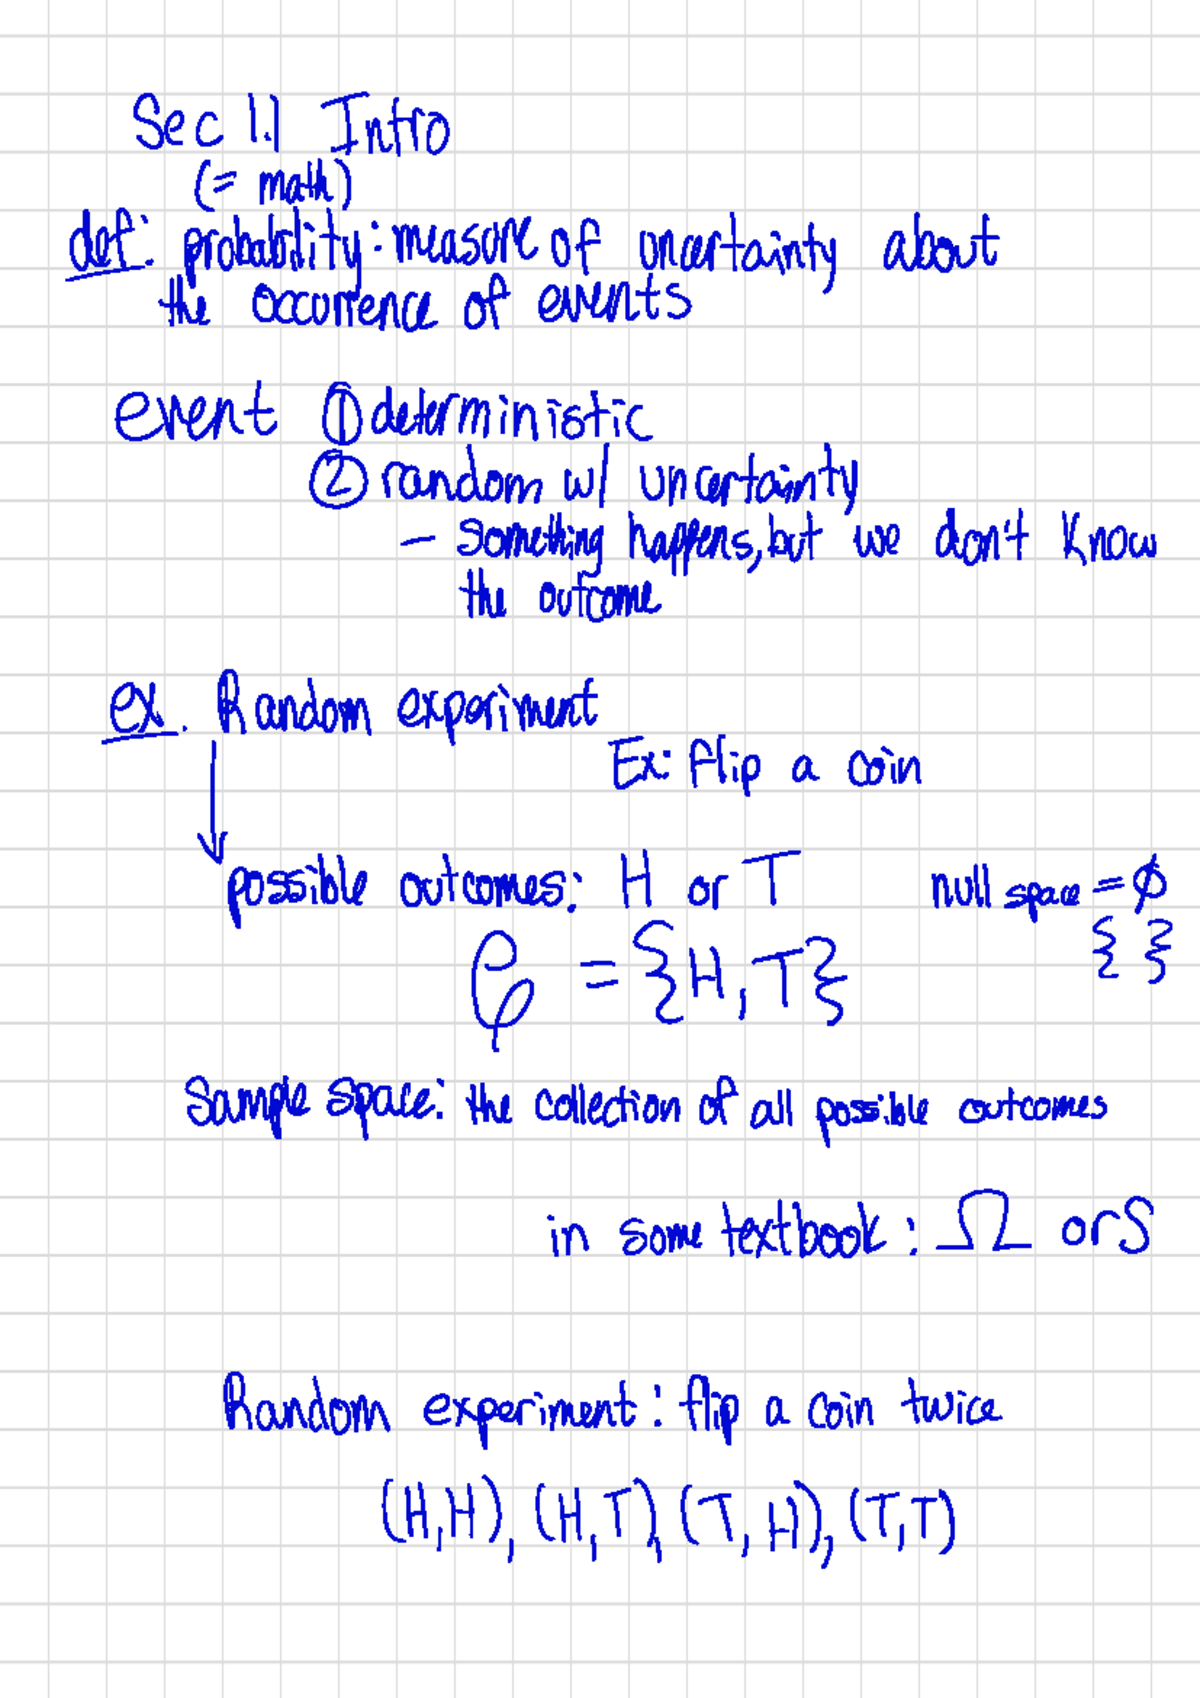 Sec 1.1 Intro
(= math)
def: probability: measure of uncertainty about
the occurrence of events
event ① deterministic
② random w/ uncertainty
- Something happens, but we don't know
the outcome
ex. Random experiment
Ex: flip a coin
possible outcomes: H or T
null space = ∅
{ }
= {H, T}
Sample space: the collection of all possible outcomes
in some textbook: Ω or S
Random experiment: flip a coin twice
(H,H), (H,T), (T, H), (T,T)